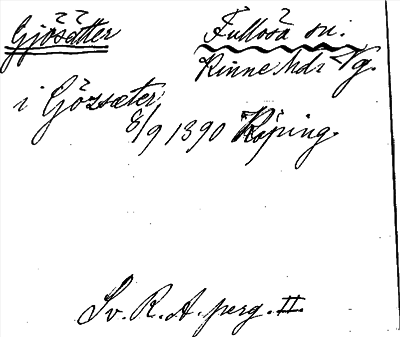 Gjösätter Fullösa sn.
Kinne hdr Vg.
i Gözsæter
8/9 1390 Köping.
Sv. R. A. perg. II.